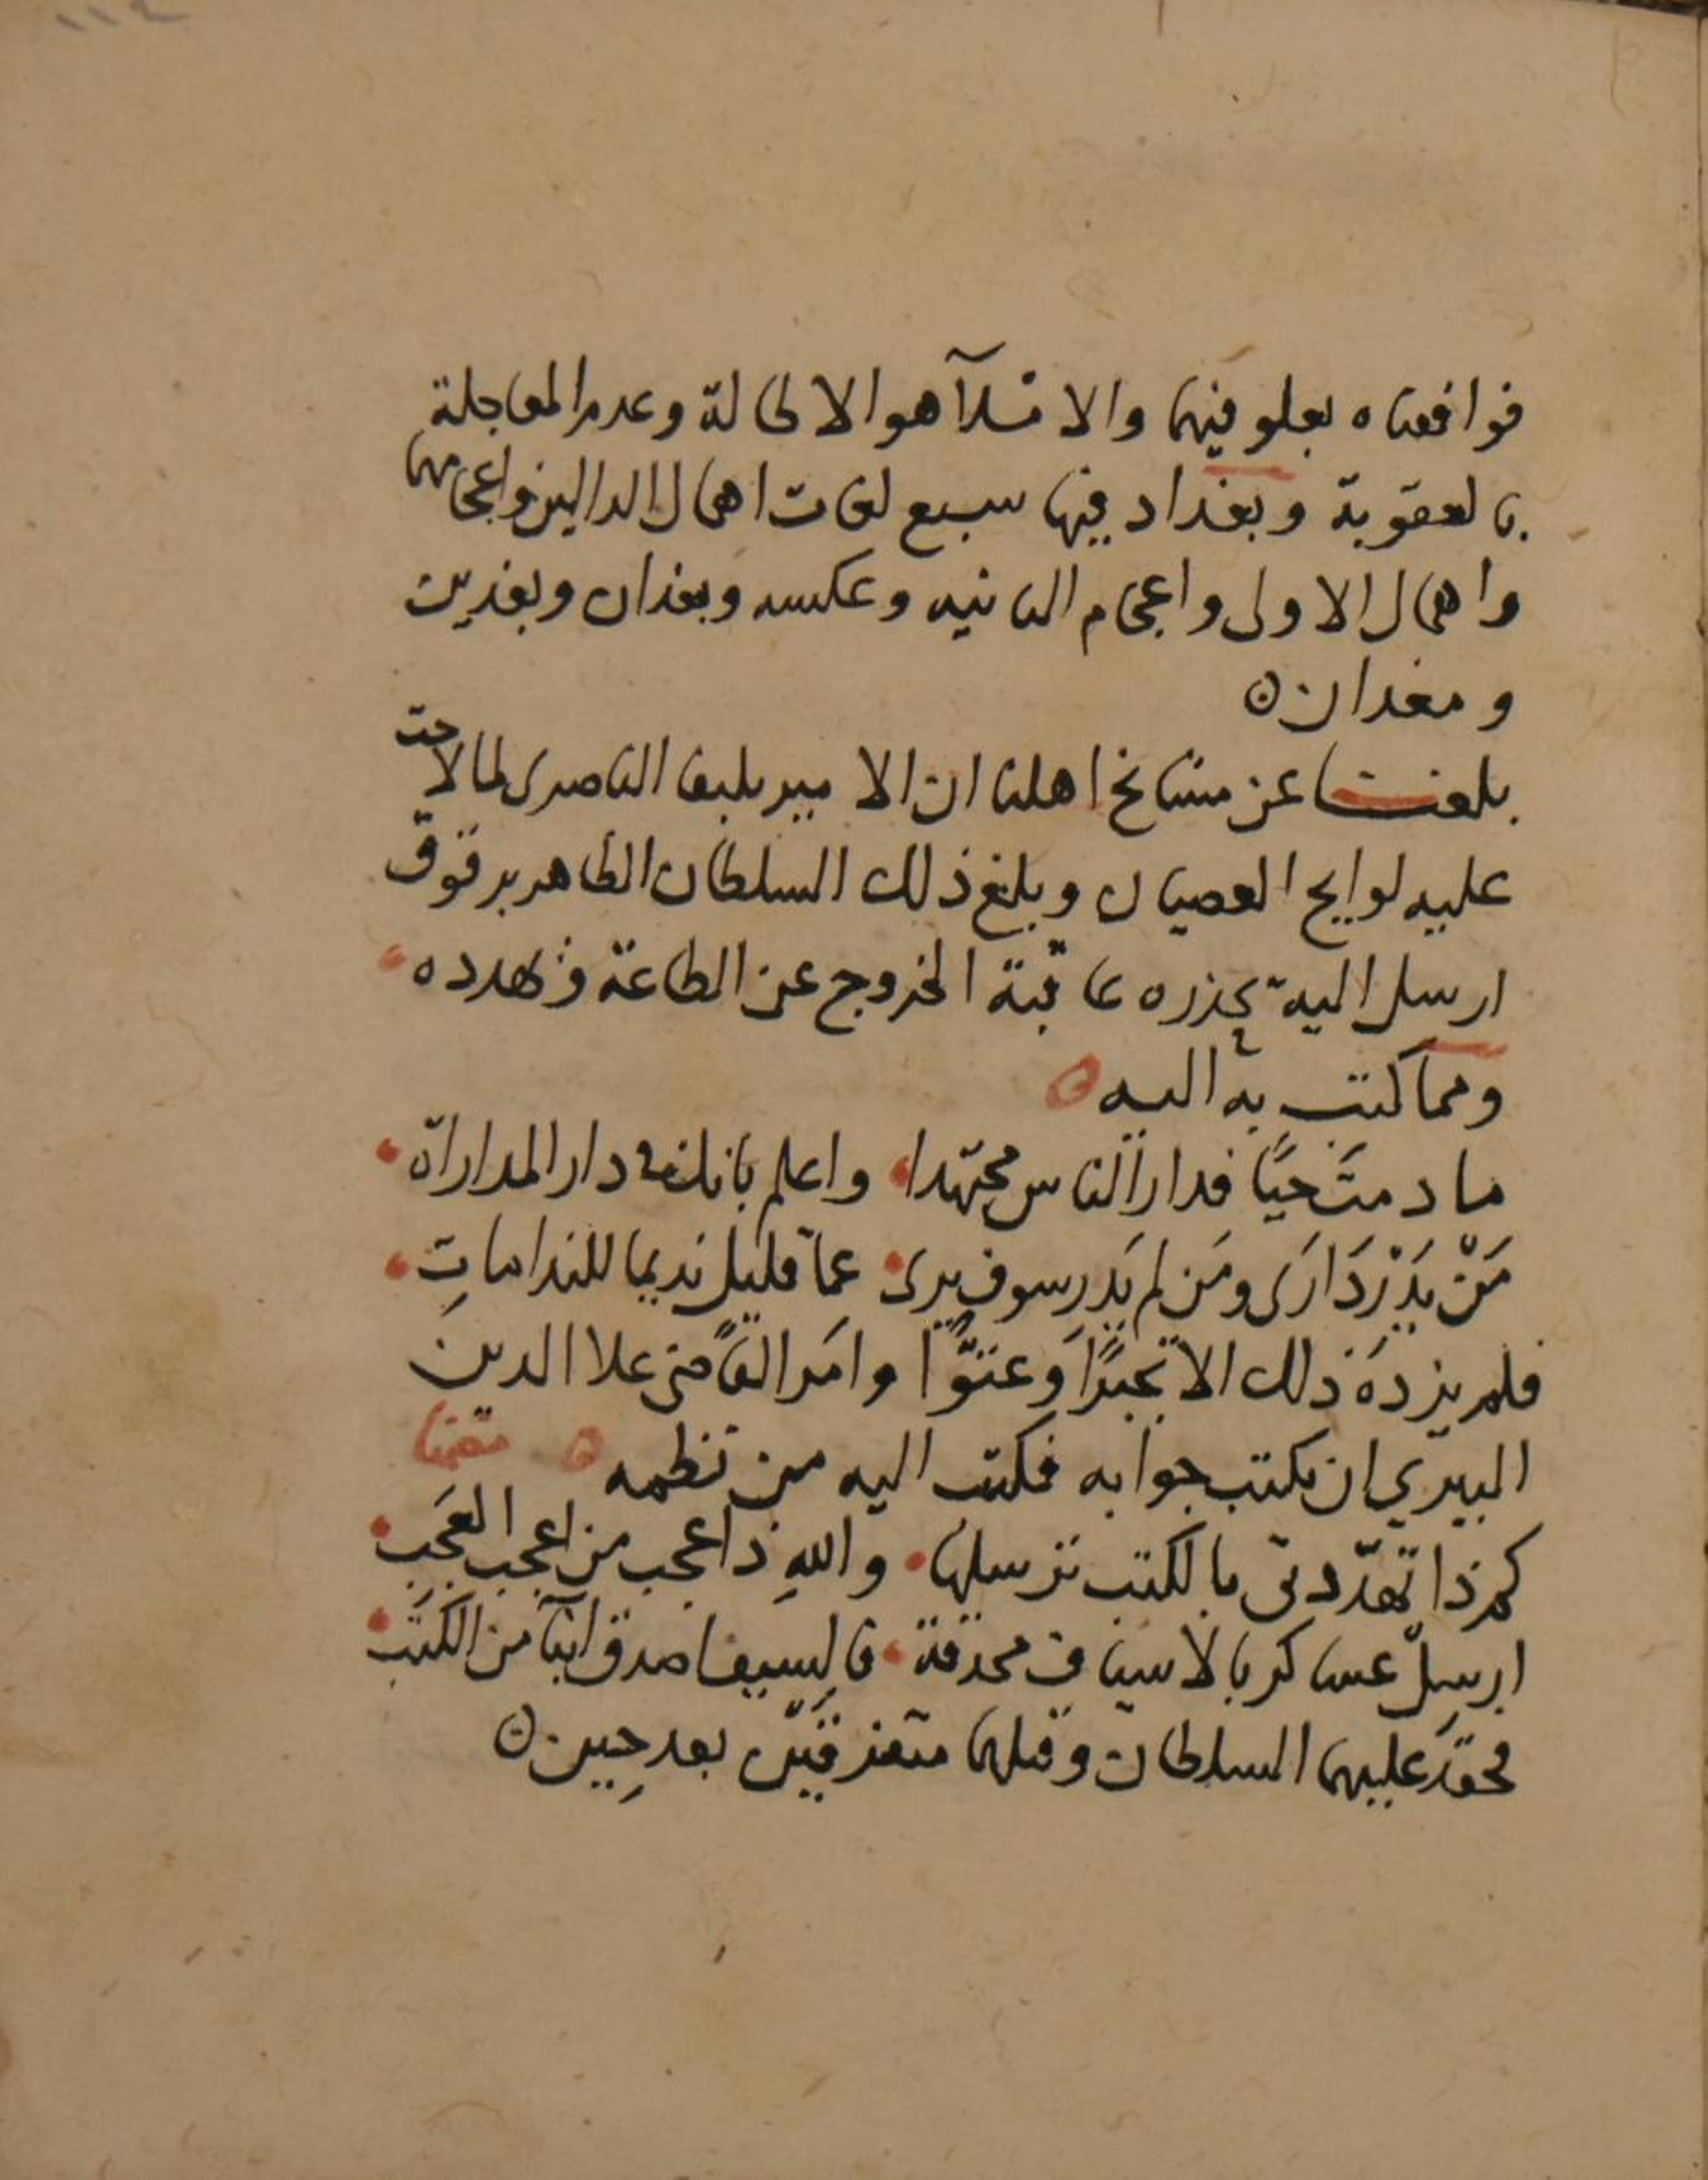 ١١٤
فوافقناه بعلو فيهما والاملآ هو الاطالة وعدم المعاجلة
بالعقوبة وبغداد فيها سبع لغات اهمال الدالين واعجامهما
واهمال الاولى واعجام الثانيه وعكسه وبغدان وبغدين
ومغدان ه
بلغنا عن مشايخ اهلنا ان الامير يلبغا الناصرى لما لاحت
عليه لوايح العصيان وبلغ ذلك السلطان الظاهر برقوق
ارسل اليه يحذره عاقبة الخروج عن الطاعة وتهدده
ومما كتب به اليه ه
ما دمتَ حيًا فدار الناس مجتهدا واعلم بانك في دار المداراة
مَنْ يَدْرِ دَارَى ومَن لم يَدر سوف يرى عما قليل نديما للنداماتِ
فلم يزدهُ ذلك الا تجبرًا وعتوًّا وامَر القاضى علا الدين
البيري ان يكتب جوابه فكتب اليه من نظمه ه
كم ذا تهدّدنى بالكتب ترسلها واللهِ ذا عجب من اعجب العَجَبِ
ارسِلْ عساكر بالاسياف محدقة فالسيف اصدق انبآ من الكتبِ
عليهما السلطان وقتلهما متفرقَيْن بعد حِين ه